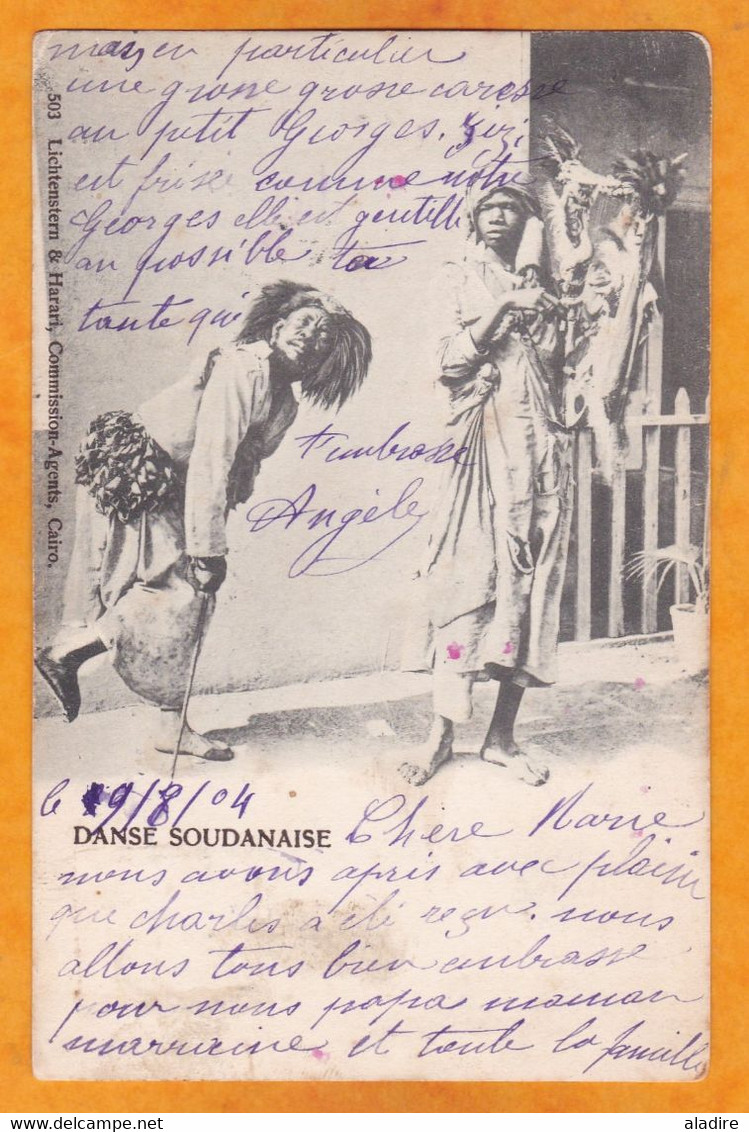 le 19/8/04
DANSE SOUDANAISE
Chère Marie
nous avons apris avec plaisir
que charles a été reçu. nous
allons tous bien embrasse
pour nous papa maman
marraine et toute la famille
mais en particulier
une grosse grosse caresse
au petit Georges. Zizi
est frisée comme notre
Georges elle est gentille
au possible ta
tante qui
t'embrasse
Angèle
503 Lichtenstern & Harari, Commission-Agents, Cairo.
delcampe.net
aladire